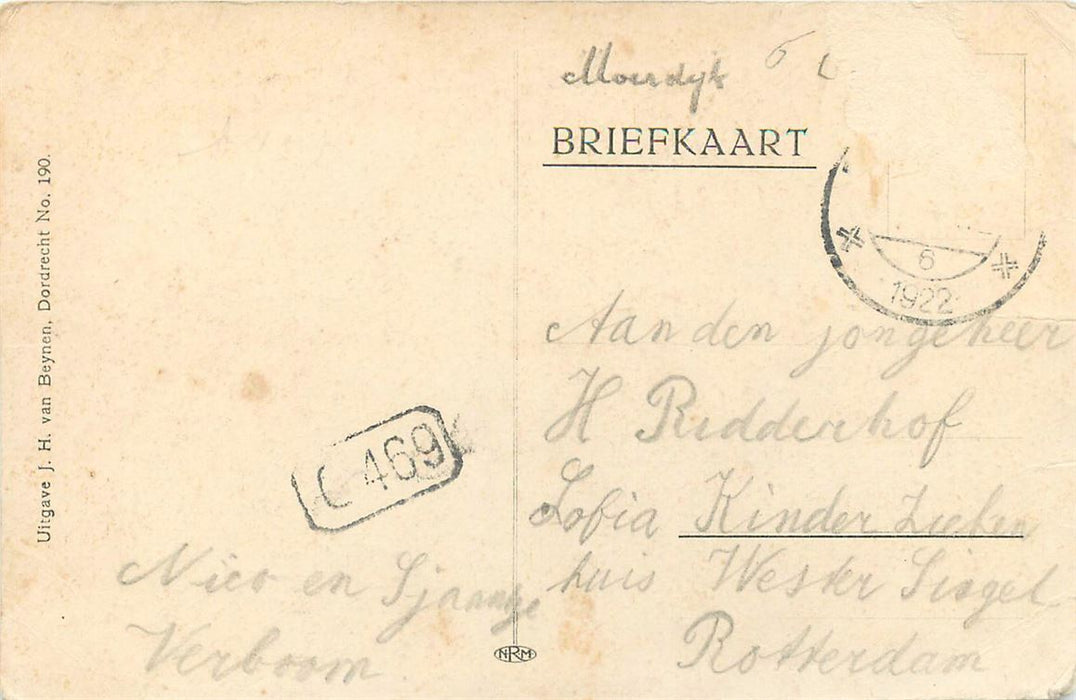 Uitgave J. H. van Beynen, Dordrecht No. 190.
Moerdyk
BRIEFKAART
6
1922
Aan den jongeheer
H Ridderhof
Sofia Kinder Zieken
huis Wester Singel
Rotterdam
C 469
Nico en Sjaantje
Verboom
NRM